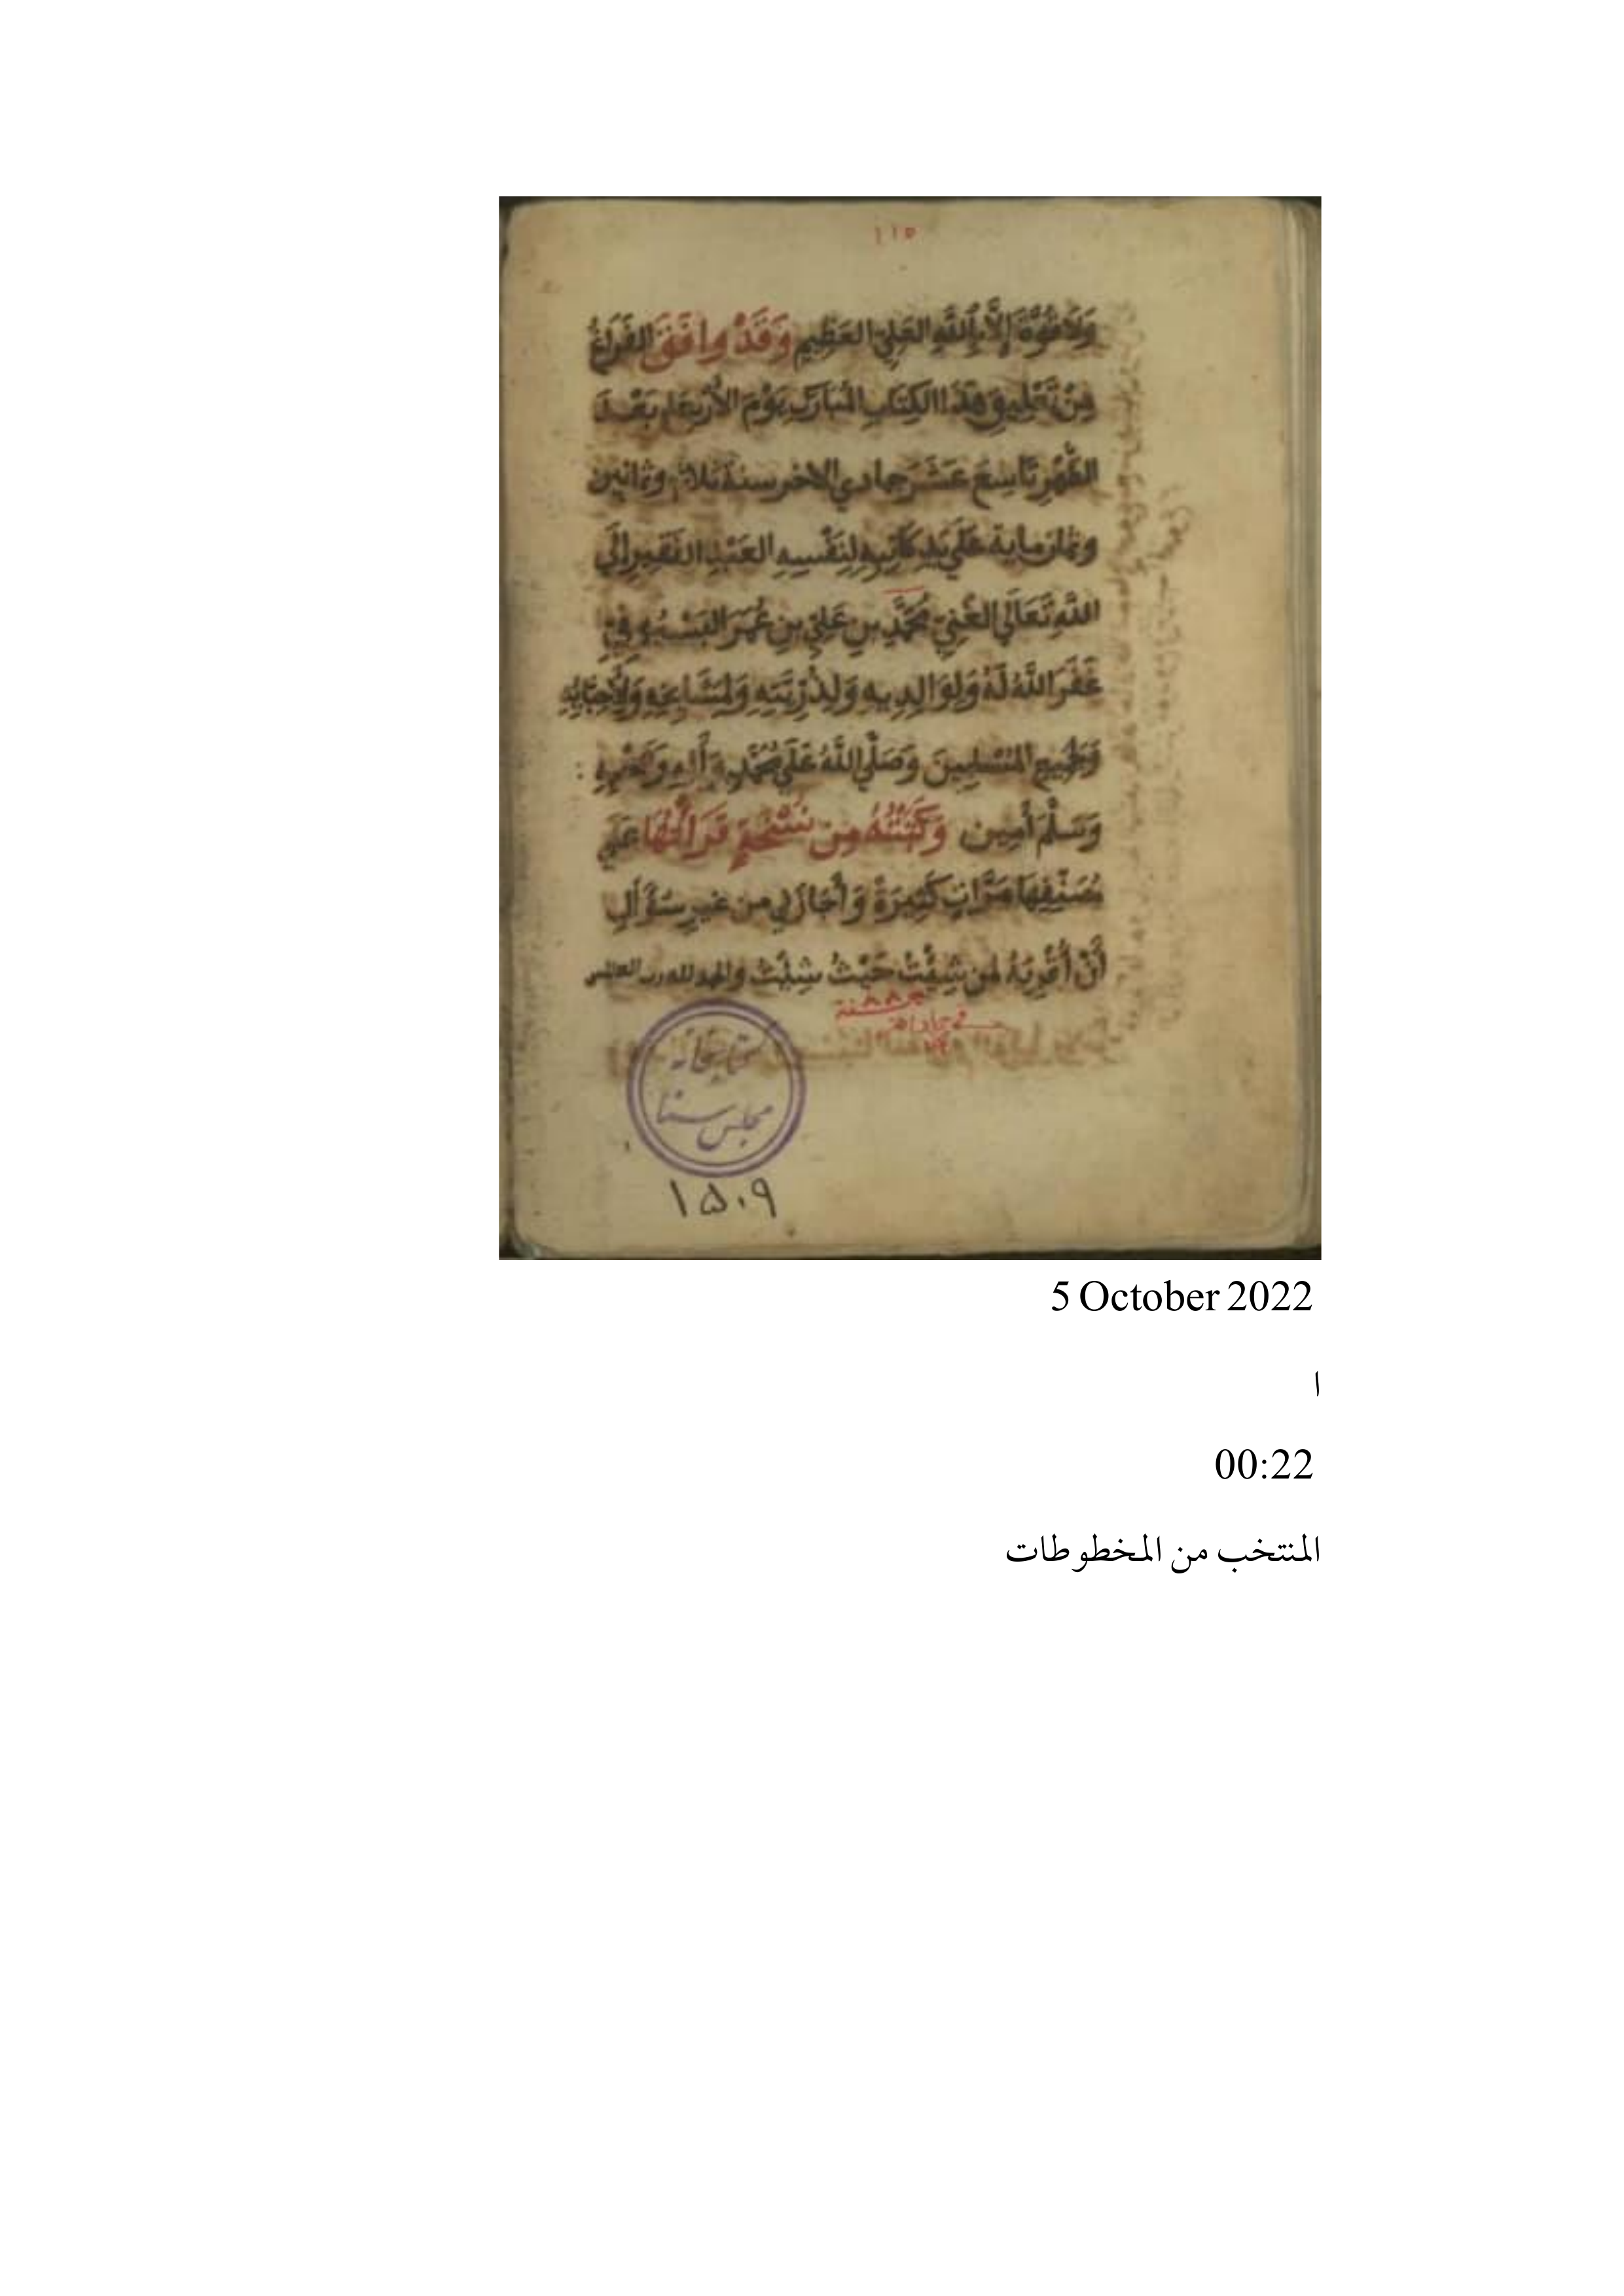 ١١٥
وَلَا قُوَّةَ إِلَّا بِاللَّهِ العَلِيِّ العَظِيمِ وَقَدْ وافَقَ الفَرَاغُ
مِنْ تَعْلِيقِ هَذَا الكِتَابِ المُبَارَكِ يَوْمَ الأَرْبِعَاءِ بَعْدَ
الظُّهْرِ تَاسِعَ عَشَرَ جمادي الاخر سنة ثلاث وثمانين
وثمانماية عَلَي يَدِ كَاتِبِهِ لِنَفْسِهِ العَبْدِ الفَقِيرِ إِلَي
اللَّهِ تَعَالَي الغَنِيِّ مُحَمَّدِ بنِ عَلِيِّ بنِ عُمَرَ
غَفَرَ اللَّهُ لَهُ وَلِوَالِدِيهِ وَلِذُرِّيَّتِهِ وَلِمَشَايِخِهِ وَلِأَحِبَّائِهِ
وَلِجَمِيعِ المُسْلِمِينَ وَصَلَّي اللَّهُ عَلَي مُحَمَّدٍ وَآلِهِ وَصَحْبِهِ
وَسَلَّمَ آمِين وَكَتَبْتُهُ مِن نُسْخَةٍ قَرَأْتُهَا عَلَي
مُصَنِّفِهَا مَرَّاتٍ كَثِيرَةً وَأَجَازَ لِي من غيرِ سُؤَالٍ
أَنْ أُقْرِيَهُ لمن شِيْتُ حَيْثُ شِيْتُ والحمد لله رب العالمين
كتابخانه
مجلس سنا
١٥٠٩
5 October 2022
ا
00:22
المنتخب من المخطوطات